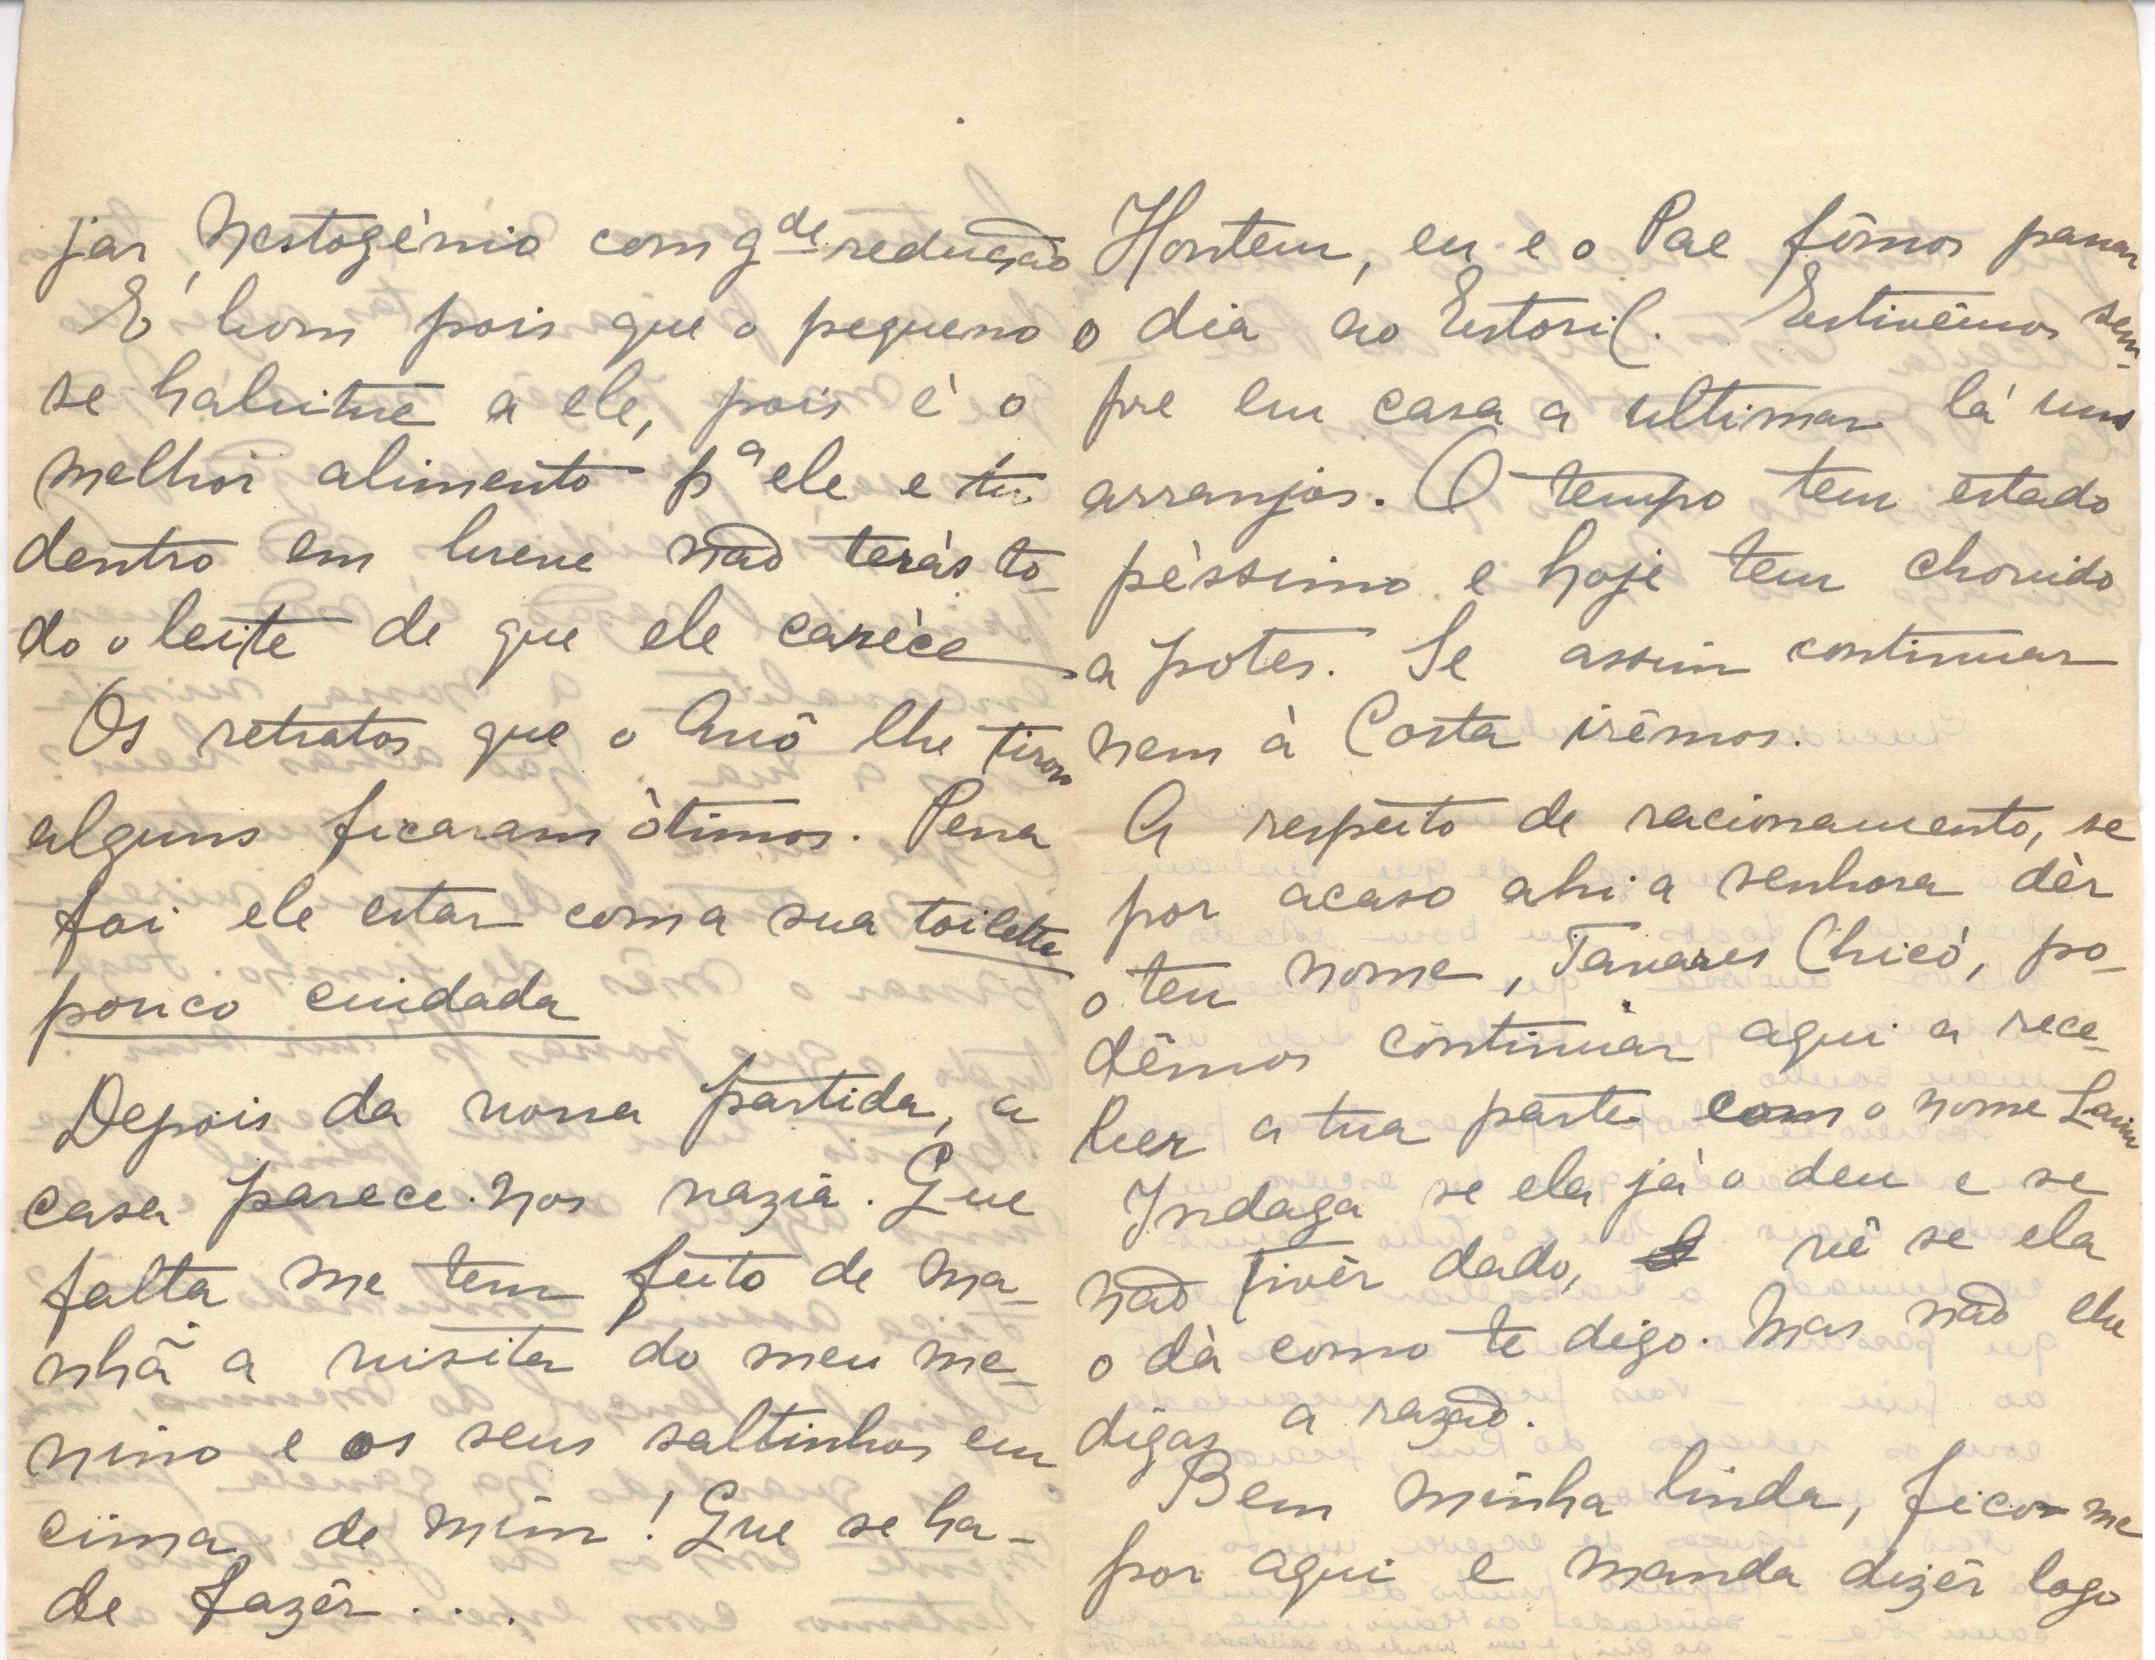 jar, Nestogènio com gde redução
É bom pois que o pequeno
se habitue a ele, pois è o
melhor alimento pª ele e tu
dentro em breve não teràs to-
do o leite de que ele carèce
Os retratos que o Avô lhe tirou
alguns ficaram òtimos. Pena
foi ele estar com a sua toilette
pouco cuidada
Depois da nossa partida, a
casa parece-nos vazia. Que
falta me tem feito de ma-
nhã a visita do meu me-
nino e os seus saltinhos em
cima de mim! Que se ha-
de fazêr....
Hontem, eu e o Pae fômos passar
o dia ao Estoril. Estivêmos sem-
pre em casa a ultimar lá uns
arranjos. O tempo tem estado
pèssimo e hoje tem chovido
a potes. Se assim continuar
nem à Costa irêmos.
A respeito de racionamento, se
por acaso ahi a senhora dèr
o teu nome, Tavares Chicò, po-
dêmos continuar aqui a rece-
ber a tua parte com o nome
Indaga se ela jà o deu e se
não tivèr dado, vê se ela
o dà como te digo. Mas não lhe
digas a razão.
Bem minha linda, fico-me
por aqui e manda dizêr logo